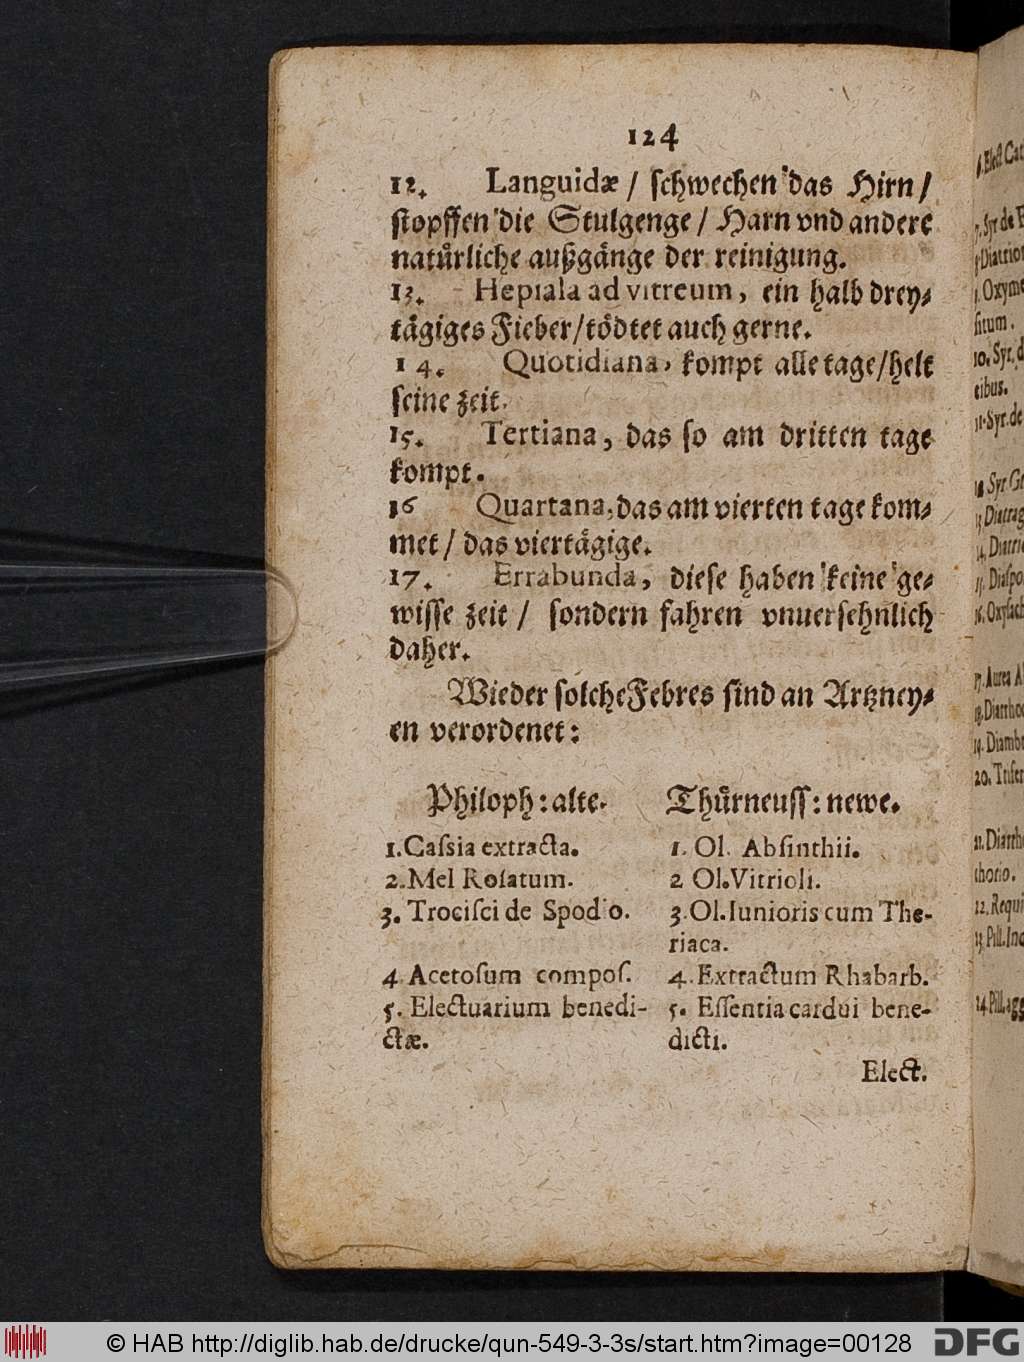 124
12. Languidæ / ſchwechen das Hirn /
ſtopffen die Stulgenge / Harn vnd andere
natuͤrliche außgaͤnge der reinigung.
13. Hepiala ad vitreum, ein halb drey⸗
taͤgiges Fieber / toͤdtet auch gerne.
14. Quotidiana, kompt alle tage / helt
ſeine zeit.
15. Tertiana, das ſo am dritten tage
kompt.
16 Quartana, das am vierten tage kom⸗
met / das viertaͤgige.
17. Errabunda, dieſe haben keine ge⸗
wiſſe zeit / ſondern fahren vnuerſehnlich
daher.
Wieder ſolche Febres ſind an Artzney⸗
en verordenet:
Philoph: alte.
1. Caſsia extracta.
2. Mel Roſatum.
3. Trociſci de Spodio.
4. Acetoſum compoſ.
5. Electuarium benedi-
ctæ.
Thuͤrneuſſ: newe.
1. Ol. Abſinthii.
2 Ol. Vitrioli.
3. Ol. Iunioris cum The-
riaca.
4. Extractum Rhabarb.
5. Eſſentia cardui bene-
dicti.
Elect.
© HAB http://diglib.hab.de/drucke/qun-549-3-3s/start.htm?image=00128
DFG